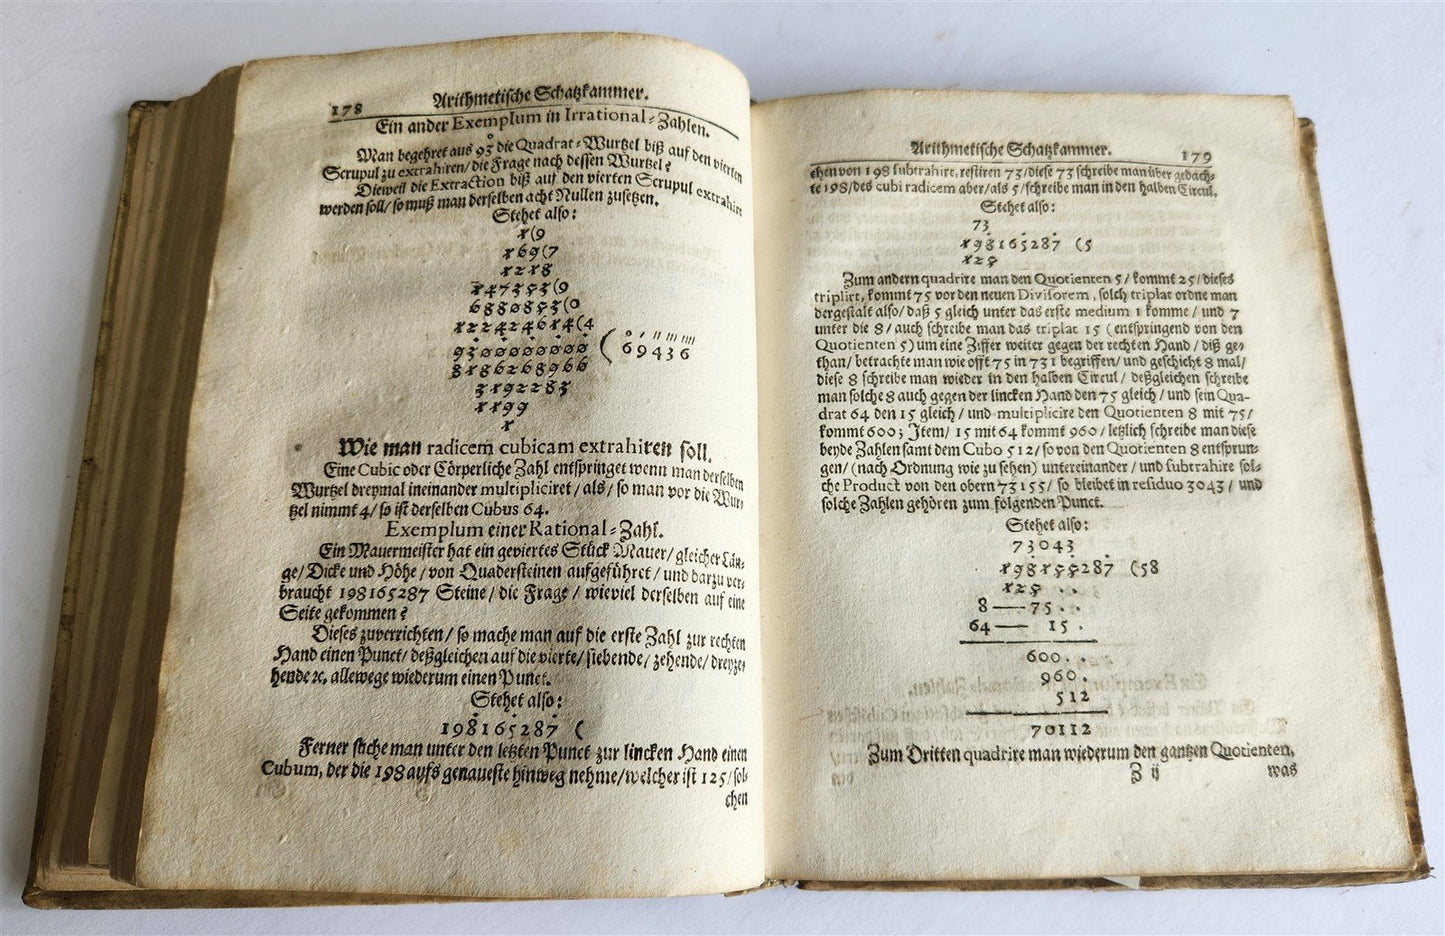 178 Arithmetische Schatzkammer.
Ein ander Exemplum in Irrational-Zahlen.
Man begehret aus 93 die Quadrat-Wurtzel biß auf den vierten
Scrupul zu extrahiren/ die Frage nach dessen Wurtzel?
Dieweil die Extraction biß auf den vierten Scrupul extrahirt
werden soll/ so muß man derselben acht Nullen zusetzen.
Stehet also:
1(9
169(7
1218
147353(9
6880853(0
122424614(4
9300000000 ( 69436
8186268966
3192283
1199
1
Wie man radicem cubicam extrahiren soll.
Eine Cubic oder Cörperliche Zahl entspringet wenn man derselben
Wurtzel dreymal ineinander multipliciret/ als/ so man vor die Wur-
tzel nimmt 4/ so ist derselben Cubus 64.
Exemplum einer Rational-Zahl.
Ein Mauermeister hat ein geviertes Stück Mauer/ gleicher Län-
ge/ Dicke und Höhe/ von Quadersteinen aufgeführet/ und darzu ver-
braucht 198165287 Steine/ die Frage/ wieviel derselben auf eine
Seite gekommen?
Dieses zuverrichten/ so mache man auf die erste Zahl zur rechten
Hand einen Punct/ deßgleichen auf die vierte/ siebende/ zehende/ dreyze-
hende ꝛc. allewege wiederum einen Punct.
Stehet also:
198165287 (
Ferner suche man unter den letzten Punct zur lincken Hand einen
Cubum, der die 198 aufs genaueste hinweg nehme/ welcher ist 125/ sol-
chen
Arithmetische Schatzkammer. 179
chen von 198 subtrahirt, restiren 73/ diese 73 schreibe man über gedach-
te 198/ des cubi radicem aber/ als 5/ schreibe man in den halben Circul.
Stehet also:
73
198165287 (5
125
Zum andern quadrire man den Quotienten 5/ kommt 25/ dieses
triplirt, kommt 75 vor den neuen Divisorem, solch triplat ordne man
dergestalt also/ daß 5 gleich unter das erste medium 1 komme/ und 7
unter die 8/ auch schreibe man das triplat 15 (entspringend von den
Quotienten 5) um eine Ziffer weiter gegen der rechten Hand/ diß ge-
than/ betrachte man wie offt 75 in 731 begriffen/ und geschicht 8 mal/
diese 8 schreibe man wieder in den halben Circul/ deßgleichen schreibe
man solche 8 auch gegen der lincken Hand den 75 gleich/ und sein Qua-
drat 64 den 15 gleich/ und multiplicire den Quotienten 8 mit 75/
kommt 600; Item/ 15 mit 64 kommt 960/ letzlich schreibe man diese
beyde Zahlen samt dem Cubo 512/ so von den Quotienten 8 entsprun-
gen/ (nach Ordnung wie zu sehen) untereinander/ und subtrahire sol-
che Product von den obern 73155/ so bleibet in residuo 3043/ und
solche Zahlen gehören zum folgenden Punct.
Stehet also:
73043
198155287 (58
125 . .
8 — 75 . .
64 — 15 .
600. .
960.
512
70112
Zum Dritten quadrire man wiederum den gantzen Quotienten,
Z ij was